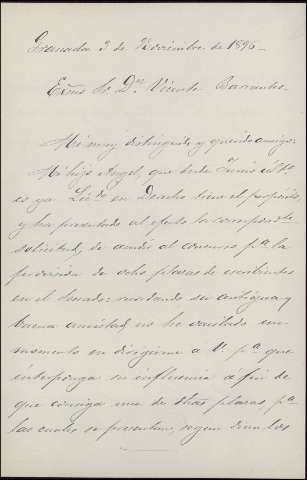 Granada 3 de Noviembre de 1895.
Exmo Sr. Dn. Vicente Barrantes.
Mi muy distinguido y querido amigo:
Mi hijo Angel, que desde Junio últº
es ya Licdo en Derecho tiene el propósito,
y ha presentado al efecto la correspondte
solicitud, de acudir al concurso pª la
provision de ocho plazas de escribientes
en el Senado: recordando su antigua y
buena amistad, no he vacilado un
momento en dirigirme á V. pª que
interponga su influencia a fin de
que consiga una de dhas plazas, pª
las cuales se presentan, segun dicen los